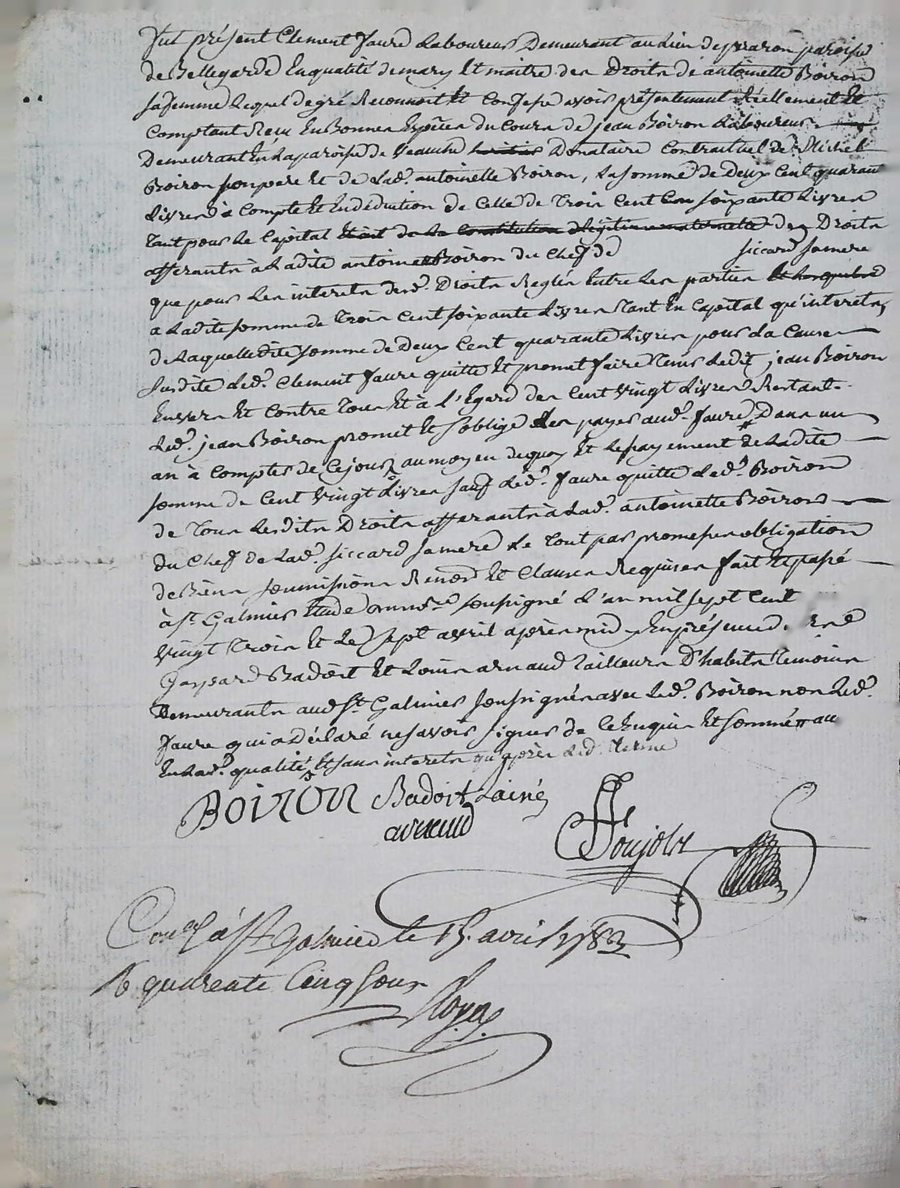 fut présent Clement faure Laboureur Demeurant au lieu de paroisse
de Bellegarde En qualité de mary Et maitre des Droits de antoinette Boiron
sa femme Lequel de gré Reconnoit Et Confesse avoir présentement Réellement Et
Comptant Reçu En Bonnes Espèces du Cours de jean Boiron Laboureur
Demeurant En la paroisse de Veauche Donataire Contractuel de Michel
Boiron son pere Et de Lad. antoinette Boiron, La somme de Deux Cent quarante
Livres à Compte Et En déduction de Celle de Trois Cent soixante Livres
tant pour Le Capital des Droits
afferants à Ladite antoinette Boiron du Chef de siccard sa mere
que pour Les interets desd. Droits Reglés Entre Les parties
a Ladite somme de Trois Cent soixante Livres tant En Capital qu'interets,
de Laquelle dite somme de Deux Cent quarante Livres pour La Cause
susdite Led. Clement faure quitte Et promet faire tenir Ledit jean Boiron
Envers Et Contre Tous Et à L'Egard des Cent Vingt Livres Restant
Led. jean Boiron promet Et s'oblige Les payer aud. faure Dans un
an à Compter de Ce jour au moyen de quoy Et Le payement de Ladite
somme de Cent Vingt Livres sauf Led. faure quitte Led. Boiron
de Tous Lesdits Droits afferants à Lad. antoinette Boiron
du Chef de Lad. siccard sa mere Le Tout par promesse obligation
de Biens soumissions Renon. Et Clauses Requises fait Et passé
à st. Galmier Etude du no.re soussigné L'an mil sept Cent
vingt Trois Et Le sept avril après midy En présence de
Gaspard Badoit Et Louis arnaud Tailleurs D'habits Temoins
Demeurants aud. st. Galmier soussignés avec Led. Boiron non Led.
faure qui a Déclaré ne savoir signer de Ce Enquis Et sommé au
En Lad. qualité, Et sans interets qu'après Led. terme
BOIRON Badoit Lainé
arnaud
Poujols
Con.lé à St. Galmier le 15. avril 1783
R quarente Cinq sous